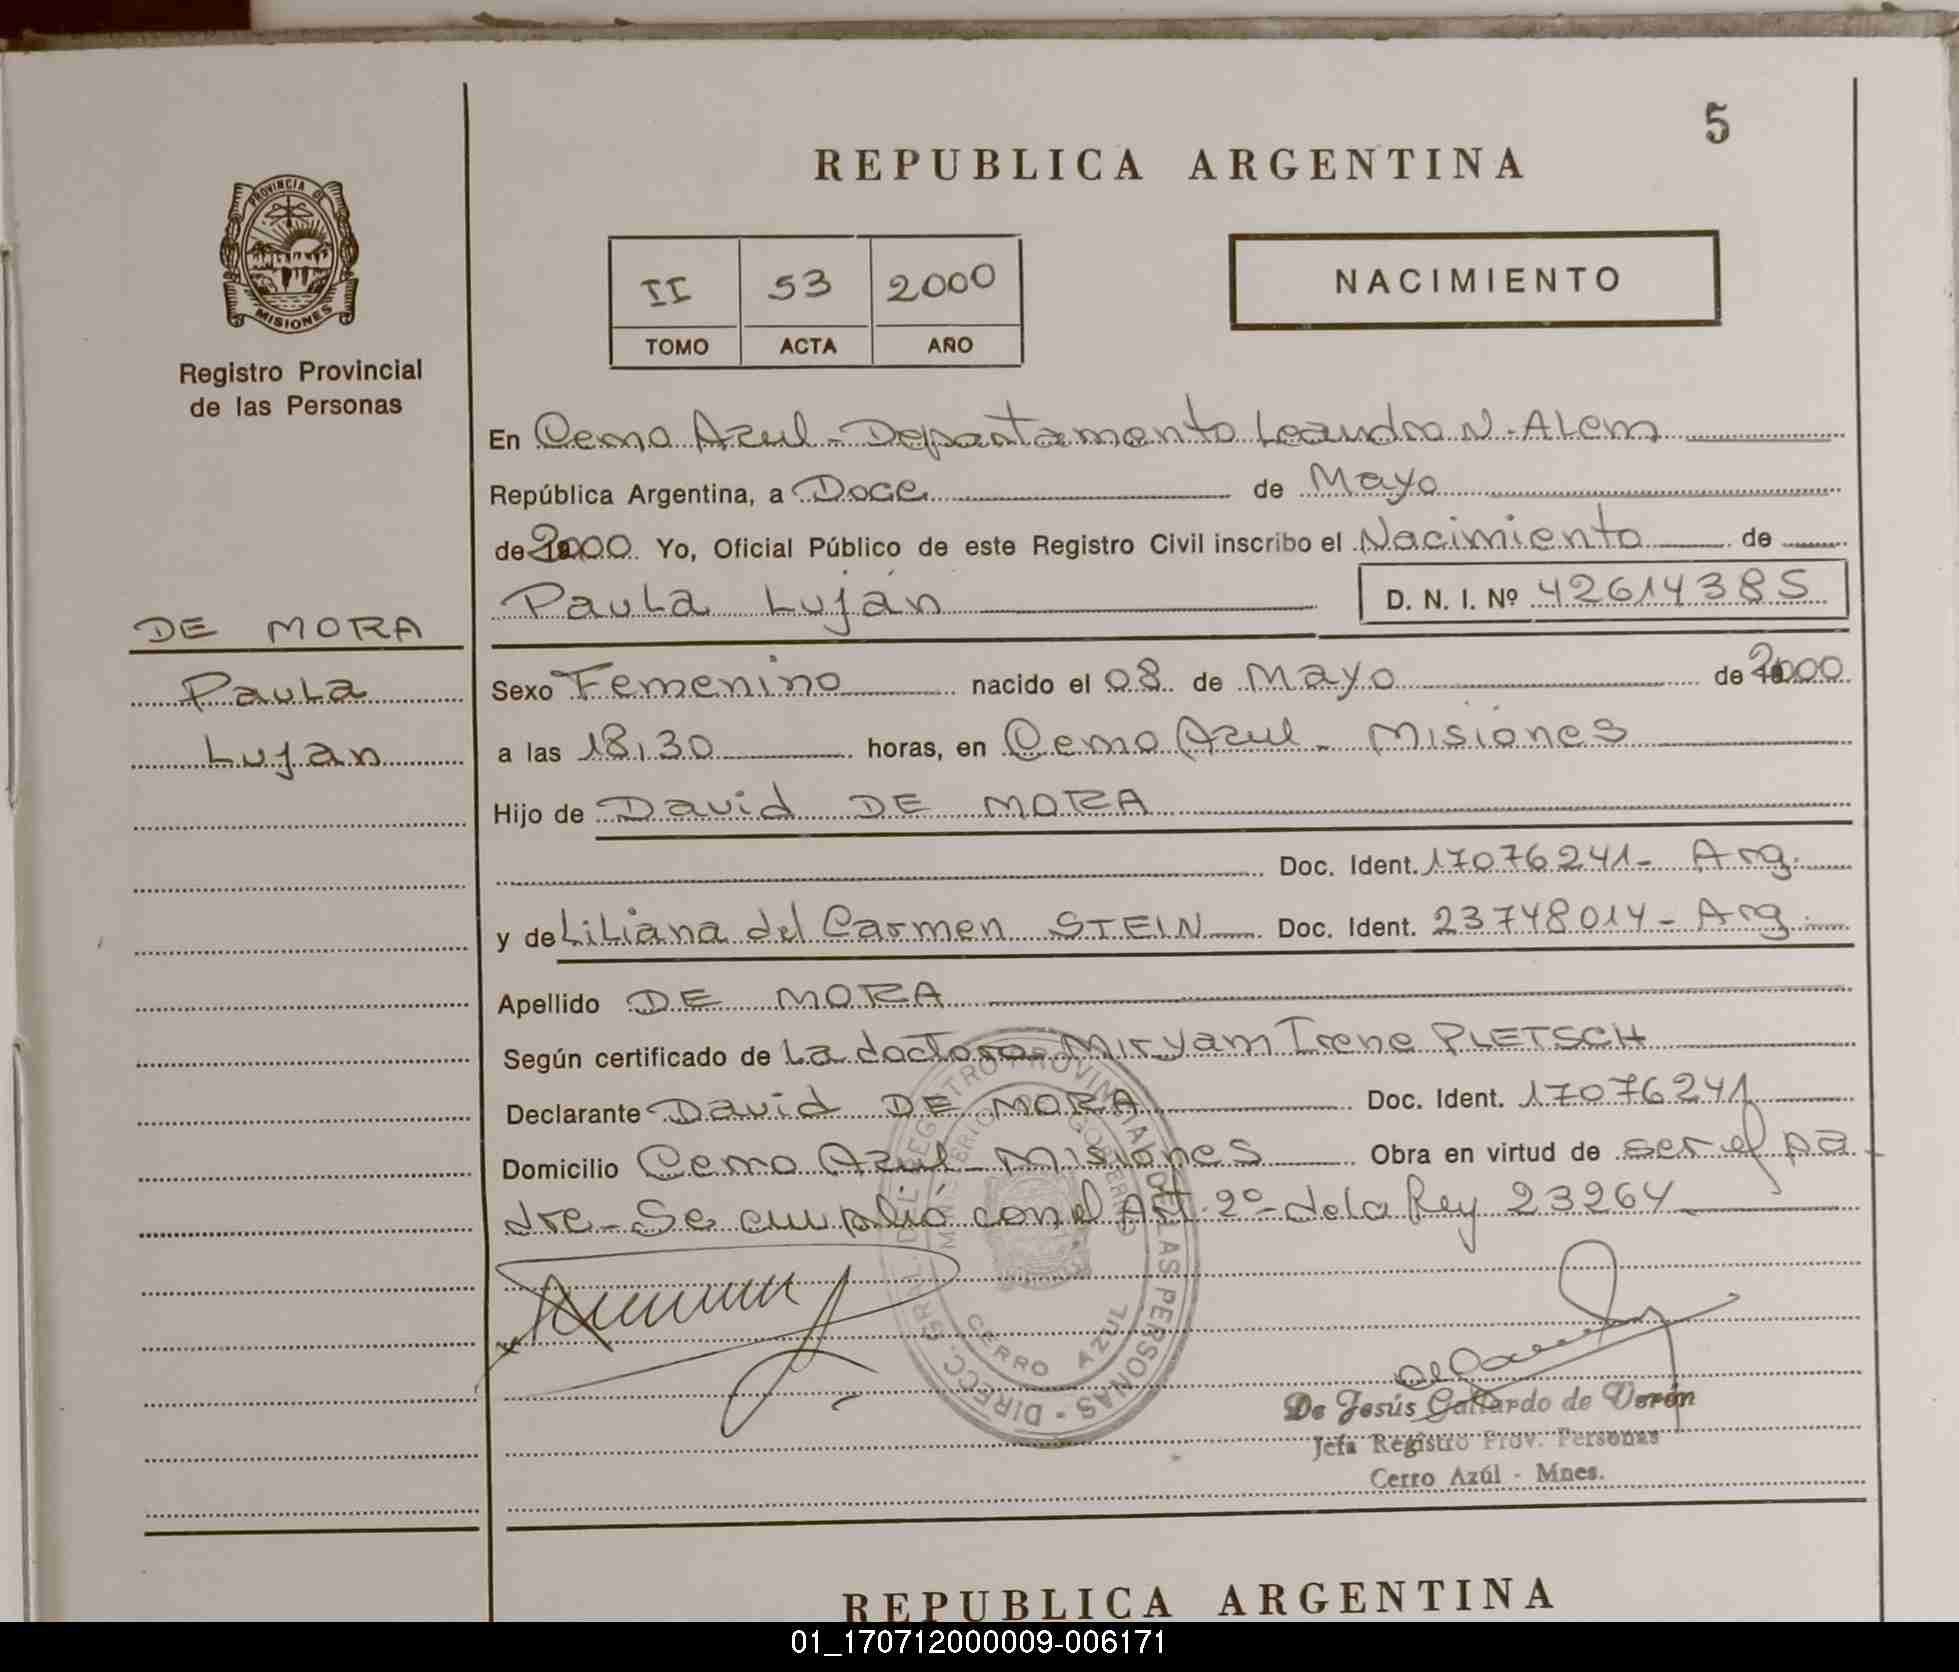 5
REPUBLICA ARGENTINA
PROVINCIA DE
MISIONES
Registro Provincial
de las Personas
II 53 2000
TOMO ACTA AÑO
NACIMIENTO
En Cerro Azul - Departamento Leandro N. Alem
República Argentina, a Doce de Mayo
de 2000 Yo, Oficial Público de este Registro Civil inscribo el Nacimiento de
Paula Luján D. N. I. Nº 42614385
DE MORA
Paula
Luján
Sexo Femenino nacido el 08 de Mayo de 2000
a las 18,30 horas, en Cerro Azul - Misiones
Hijo de David DE MORA
Doc. Ident. 17076241- Arg.
y de Liliana del Carmen STEIN Doc. Ident. 23748014- Arg.
Apellido DE MORA
Según certificado de la doctora Miryam Irene PLETSCH
Declarante David DE MORA Doc. Ident. 17076241
Domicilio Cerro Azul - Misiones Obra en virtud de ser el pa-
dre - Se cumplió con el Art. 2º- de la Ley 23264
DIRECC. GRAL. DEL REGISTRO PROVINCIAL DE LAS PERSONAS
MINISTERIO GOBIERNO
CERRO AZUL
De Jesús Gallardo de Verón
Jefa Registro Prov. Personas
Cerro Azúl - Mnes.
REPUBLICA ARGENTINA
01_170712000009-006171